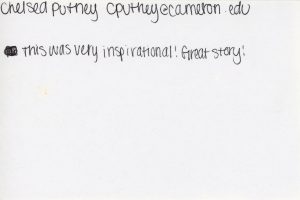 Chelsea Putney cputney@cameron.edu
This was very inspirational! Great story!